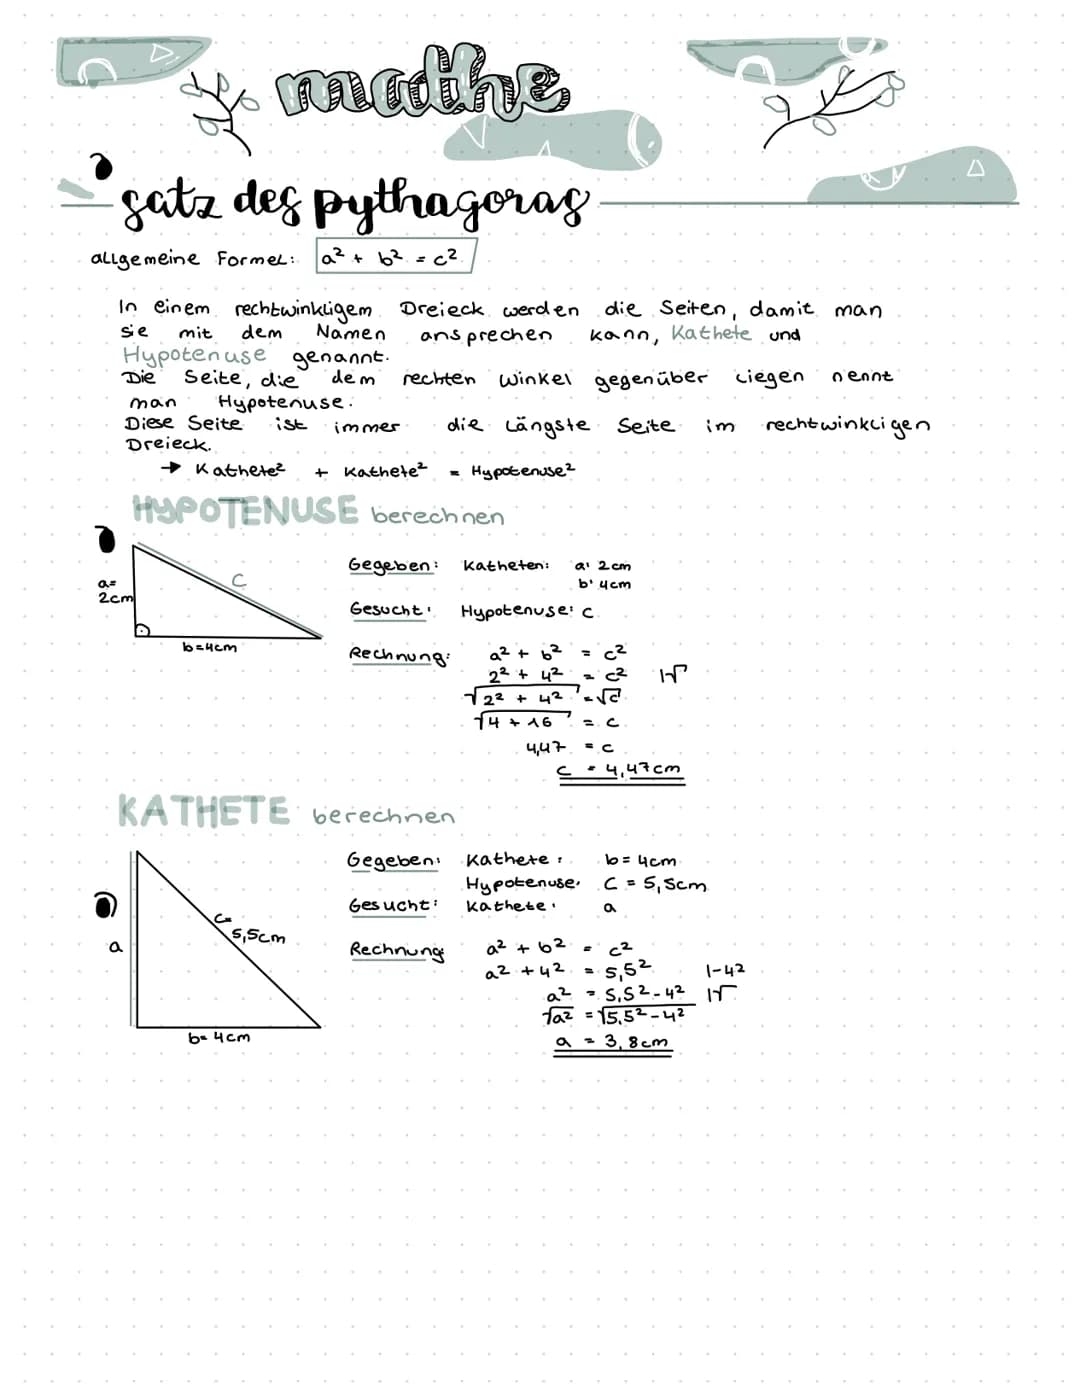 mathe
satz des pythagoras
allgemeine Formel: a² + b² = c²
In einem rechtwinkligem Dreieck werden die Seiten, damit man
sie mit dem Namen ansprechen kann, Kathete und
Hypotenuse genannt.
Die Seite, die dem rechten Winkel gegenüber liegen nennt
man Hypotenuse.
Diese Seite ist immer die längste Seite im rechtwinkligen
Dreieck.
→ Kathete² + Kathete² = Hypotenuse²
HYPOTENUSE berechnen
a=
2cm
c
b=4cm
Gegeben: Katheten: a: 2cm
b: 4cm
Gesucht: Hypotenuse: c
Rechnung: a² + b² = c²
2² + 4² = c² |√
√2² + 4² = √c²
√4 + 16 = c
4,47 = c
c = 4,47cm
KATHETE berechnen
a
c=
5,5cm
b= 4cm
Gegeben: Kathete: b= 4cm
Hypotenuse: C = 5,5cm
Gesucht: Kathete: a
Rechnung: a² + b² = c²
a² + 4² = 5,5² |-4²
a² = 5,5² - 4² |√
√a² = √5,5² - 4²
a = 3,8cm